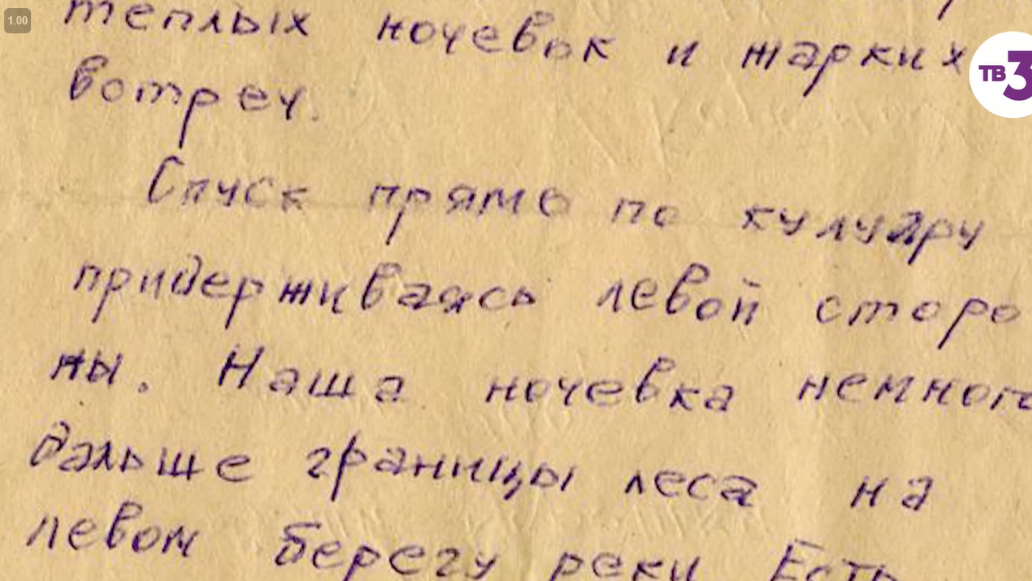 1.00
теплых ночевок и жарких
вотреч.
ТВ3
Спуск прямо по кулуару
придерживаясь левой сторо
ны. Наша ночевка немного
дальше границы леса на
левом берегу реки Есть